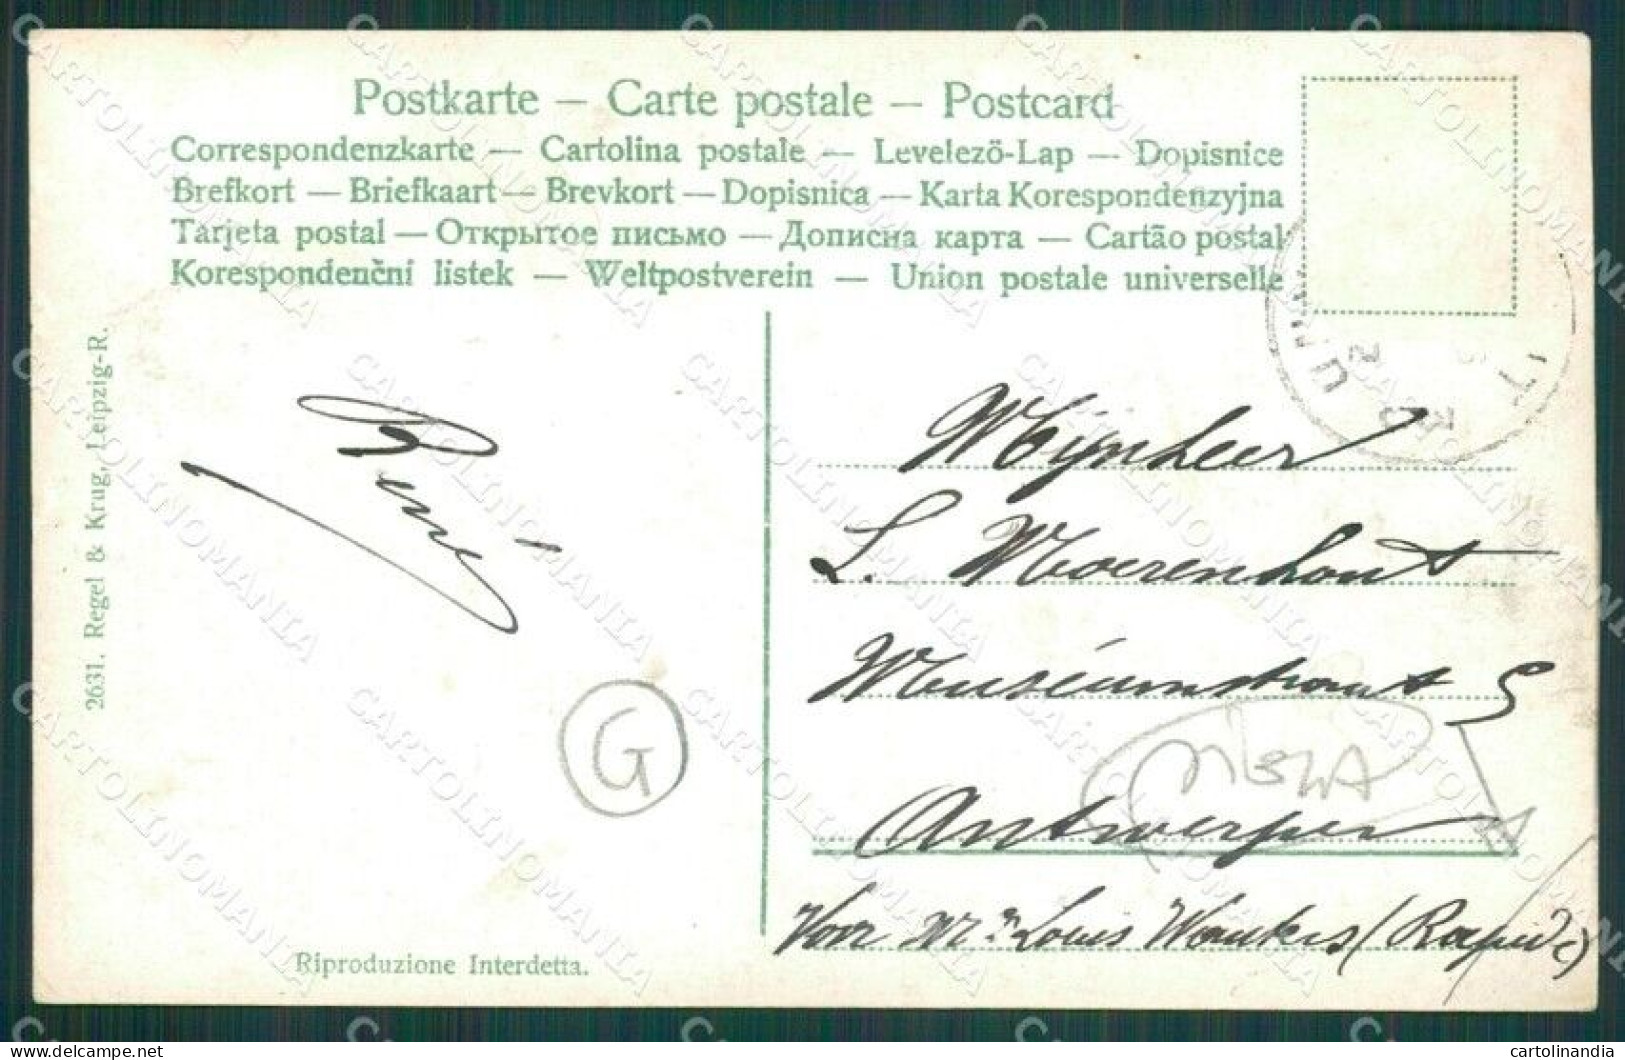 Postkarte – Carte postale – Postcard
Correspondenzkarte — Cartolina postale — Levelezö-Lap — Dopisnice
Brefkort — Briefkaart — Brevkort — Dopisnica — Karta Korespondenzyjna
Tarjeta postal — Открытое письмо — Дописна карта — Cartão postal
Korespondenční listek — Weltpostverein — Union postale universelle
2631. Regel & Krug, Leipzig-R.
René
G
Mijnheer
L. Moerenhout
Museumstraat 5
Antwerpen
Voor Mr Louis Wouters (Rapide)
Riproduzione Interdetta.
CARTOLINOMANIA
delcampe.net
cartolinandia